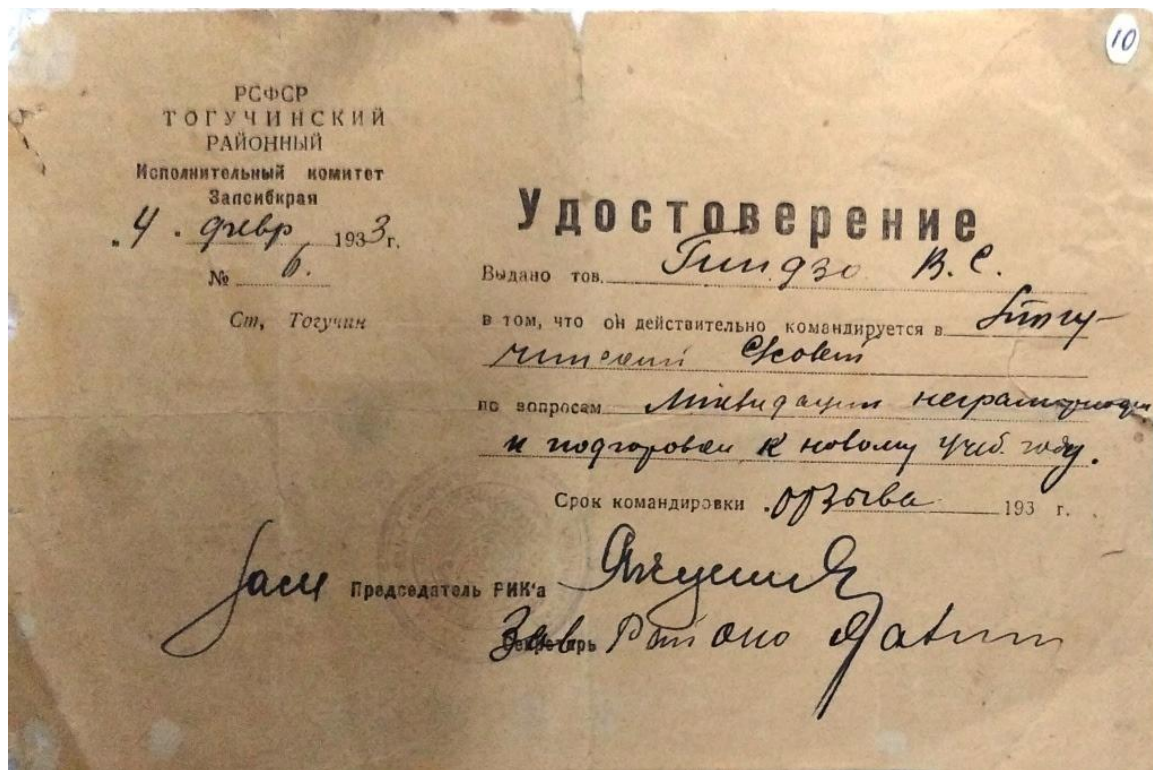 10
РСФСР
ТОГУЧИНСКИЙ
РАЙОННЫЙ
Исполнительный комитет
Запсибкрая
„4. февр 1933г.
№ 6.
Ст, Тогучин
Удостоверение
Выдано тов. Гиндзо В. С.
в том, что он действительно командируется в
по вопросам Ликвидации неграмотности
и подготовки к новому учеб. году.
Срок командировки отзыва 193 г.
Зам Председатель РИК'а
Секретарь Зав Район оно